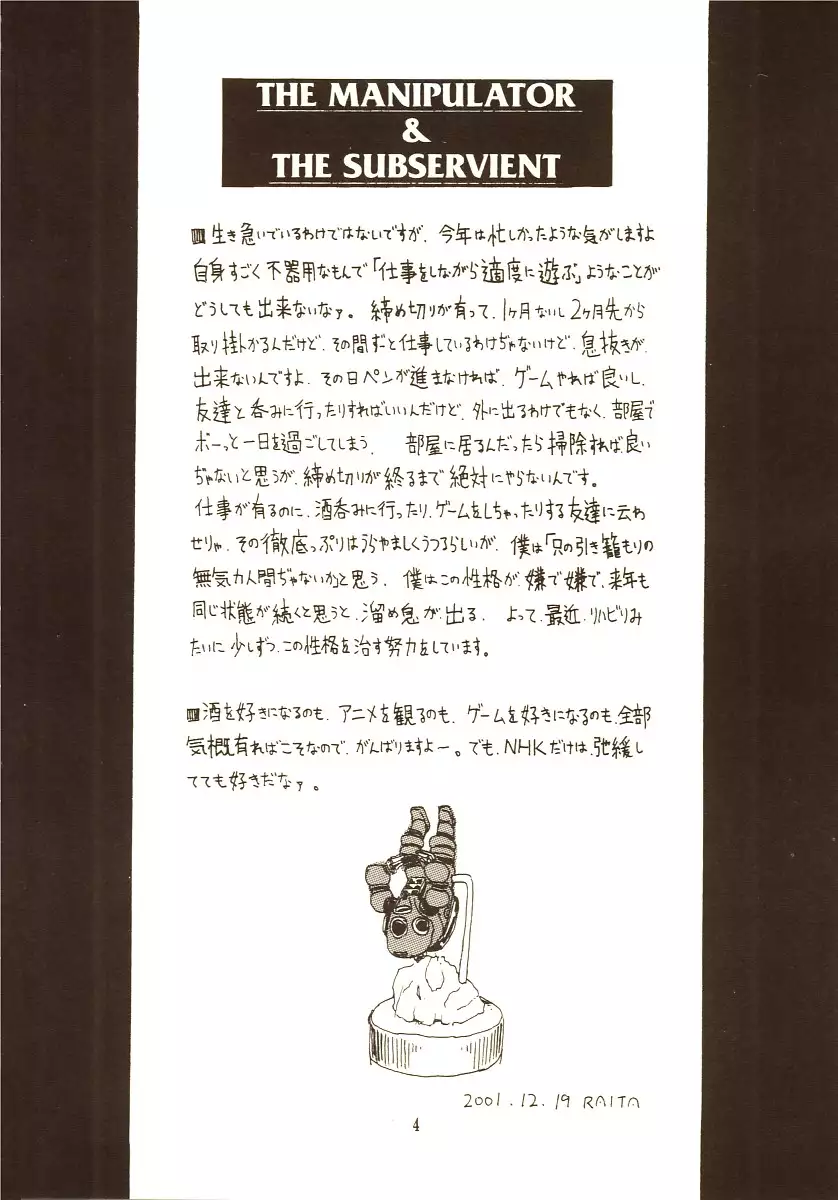 THE MANIPULATOR
&
THE SUBSERVIENT
生き急いでいるわけではないですが、今年は忙しかったような気がしますよ
自身すごく不器用なもんで「仕事をしながら適度に遊ぶ」ようなことが
どうしても出来ないなァ。締め切りが有って、1ヶ月ないし2ヶ月先から
取り掛かるんだけど、その間ずーと仕事しているわけぢゃないけど、息抜きが
出来ないんですよ、その日ペンが進まなければ、ゲームやれば良いし、
友達と呑みに行ったりすればいいんだけど、外に出るわけでもなく、部屋で
ボーっと一日を過ごしてしまう、部屋に居るんだったら掃除すれば良い
ぢゃないと思うが、締め切りが終るまで絶対にやらないんです。
仕事が有るのに、酒呑みに行ったり、ゲームをしちゃったりする友達に云わ
せりゃ、その徹底っぷりはうらやましくうつるらしいが、僕は「只の引き籠もりの
無気力人間ぢゃないかと思う、僕はこの性格が嫌で嫌で、来年も
同じ状態が続くと思うと、溜め息が出る、よって、最近、リハビリみ
たいに少しずつ、この性格を治す努力をしています。
酒を好きになるのも、アニメを観るのも、ゲームを好きになるのも、全部
気概有ればこそなので、がんばりますよー。でも、NHKだけは、弛緩し
てても好きだなァ。
2001.12.19 RAITA
4